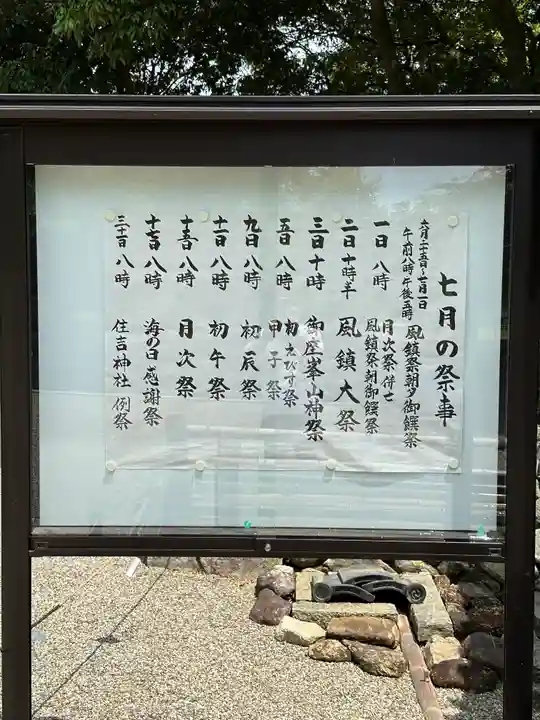 七月の祭事
六月二十五日〜七月一日
午前八時 午後五時 風鎮祭朝夕御饌祭
一日 八時 月次祭 併せ
風鎮祭朝御饌祭
二日 十時半 風鎮大祭
三日 十時 御座峯山神祭
五日 八時 初えびす祭
甲子祭
九日 八時 初辰祭
十一日 八時 初午祭
十五日 八時 月次祭
十七日 八時 海の日 感謝祭
三十一日 八時 住吉神社 例祭